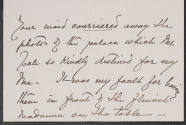 Your maid courriered away the
photos of the palace which Mr
Jack so kindly destined for my
Ma. It was my fault for leaving
them in front of the Flemish
Madonna on the table